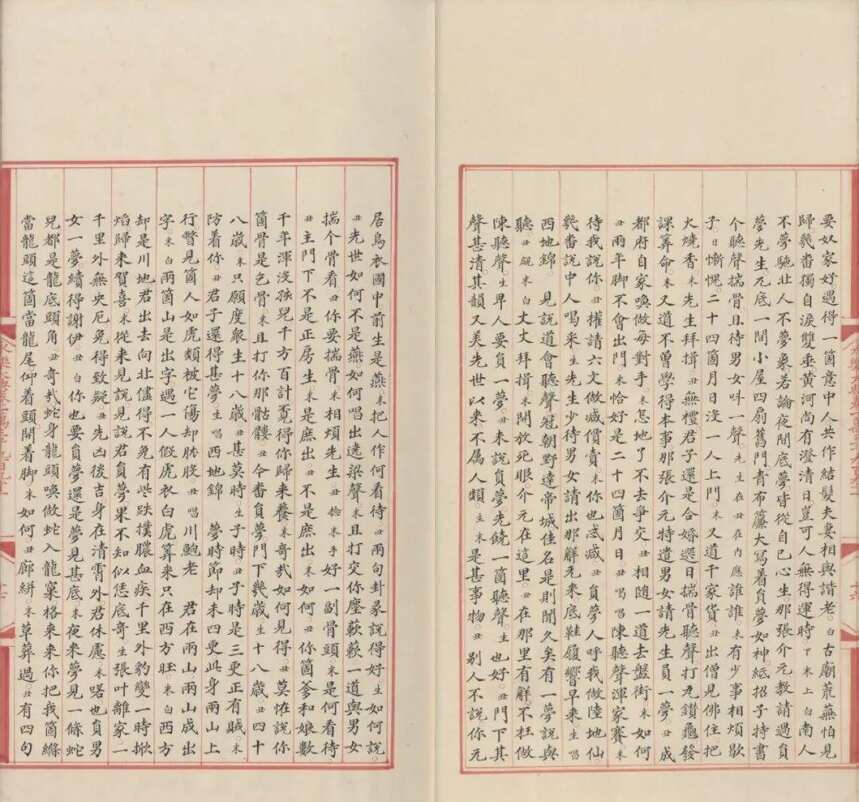 要奴家好遇得一箇意中人共作結髮夫妻相與諧老。白古廟荒蕪怕見
歸幾番獨自淚雙垂黃河尚有澄清日豈可人無得運時下末上白南人
不夢駞北人不夢象若論夜間底夢皆從自己心生那張介元教請過員
夢先生元底一間小屋四扇舊門青布簾大寫着員夢如神紙招子特書
个聽聲揣骨且待男女呌一聲先生在丑在內應誰誰末有少事相煩歇
子日慚愧二十四箇月日沒一人上門末又道千家貨丑出僧見佛住把
火燒香末先生拜揖丑無禮君子還是合婚選日揣骨聽聲打瓦鑽龜發
課筭命末又道不曾學得本事那張介元特遣男女請先生員一夢丑成
都府自家喚做每對手末恁地了不去爭交丑相隨一道去盤街末如何
丑兩年脚不會出門末恰好是二十四箇月日丑唱唱陳聽聲渾家賽末
待我說你丑權請六文做減償賣末你也忒減丑負夢人呼我做陸地仙
幾番說中人喝采末先生少待男女請出那解元來底鞋履響早來生唱
西地錦 見說道會聽聲冠朝野達帝城佳名是則聞久矣有一夢說與
聽丑硯末白丈丈拜揖末開放死眼介元在這里丑在那里有解末枉做
陳聽聲生卑人要負一夢末未說負夢先繞一箇聽聲生也好丑門下其
聲甚清其韻又美先世以來不属人類生末是甚事物丑別人不說你元
居烏衣國中前生是燕末把人作何看待丑兩句卦彖說得好生如何說
丑先世如何不是燕如何唱出遶梁聲末且打交你塵藪藪一道與男女
揣个骨看丑你要揣骨末相煩先生丑捻末手好一副骨頭末是何看待
丑主門下不是正房生末是庶出丑不是庶出末如何丑你箇爹和娘數
千年渾沒孫兒千方百計覓得你歸來養末奇哉如何見得丑莫恠說你
箇骨是乞骨末且打你那骷髏丑今番負夢門下幾歲生十八歲丑四十
八歲末只願度衆生十八歲丑甚莫時生子時丑子時是三更正有賊末
防着你丑君子還得甚夢生唱西地錦 夢時節却未四更此身兩山上
行瞥見箇人如虎頗被它傷却肐胑丑唱川鮑老 君在兩山兩山成出
字末白兩箇山是出字遇一人假虎衣白虎筭來只在西方旺末白西方
却是川地君出去向北儘得不免有些跌撲膿血疾千里外豹變一時掀
焰歸來賀喜末從來見說見說君負夢果不知似恁底奇生張叶離家二
千里外無灾厄免得致疑丑先凶後吉身在清霄外君休慮末喏也負男
女一夢續得謝伊丑白你也要負夢還是夢見甚底末夜來夢見一條蛇
兒都是龍底頭角丑奇哉蛇身龍頭喚做蛇入龍窠格來來你把我箇縧
當龍頭這箇當龍尾仰看頭開着脚末如何丑廊絣末草葬過丑有四句